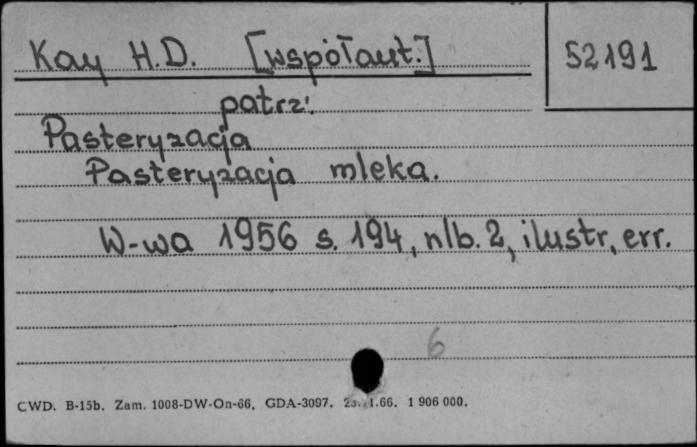 Kay H.D. [współaut.]
52191
patrz:
Pasteryzacja
Pasteryzacja mleka.
W-wa 1956 s. 194, nlb. 2, ilustr, err.
6
CWD. B-15b. Zam. 1008-DW-On-66. GDA-3097. 1.66. 1 906 000.